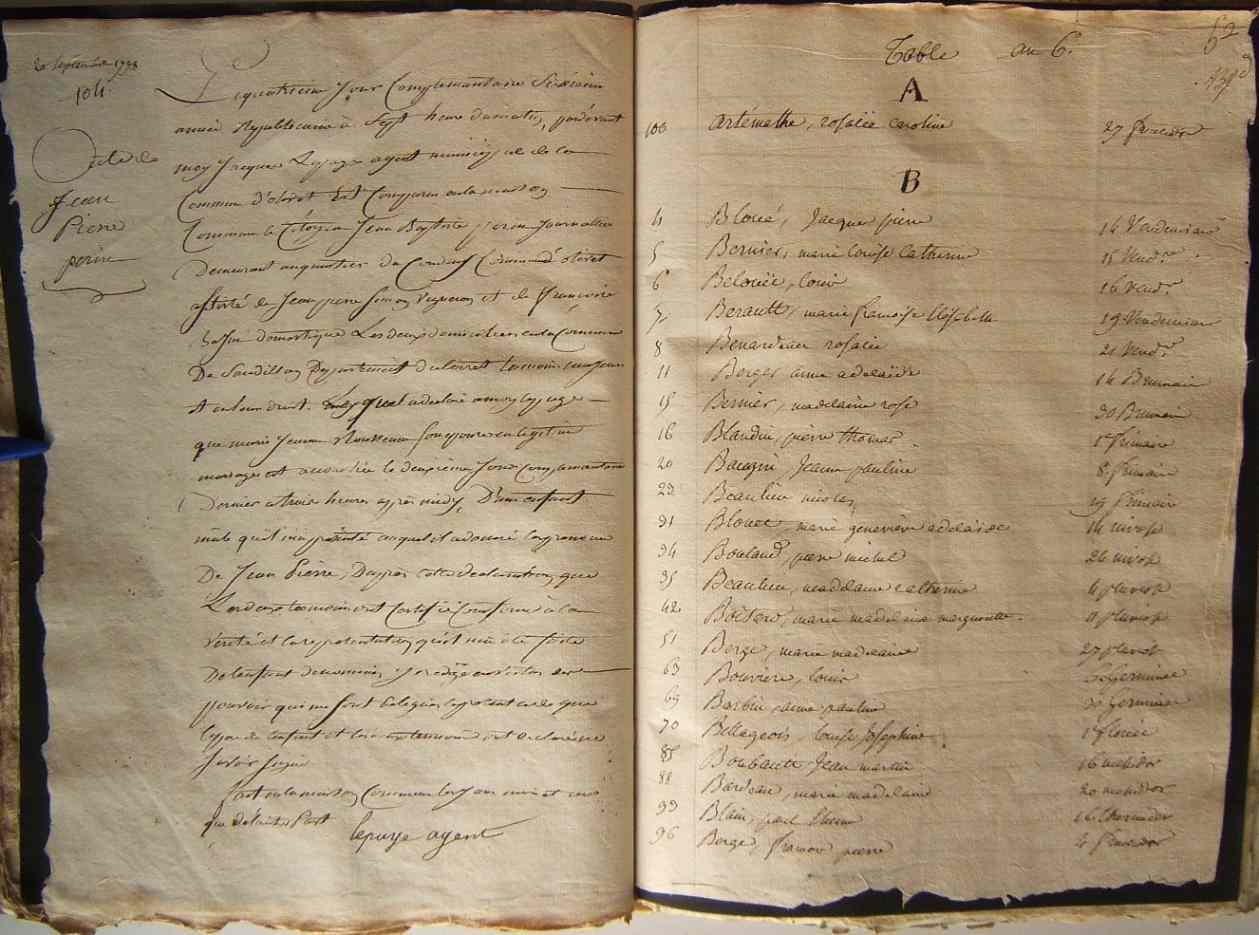 20 septembre 1798
104
acte de
Jean
Pierre
perine
Le quatrieme Jour Complementaire Sixieme
année Republicaine à Sept heure du matin, pardevant
moy Jacques Lepage agent municipal de la
Commune d'olivet Est Comparu en la maison
Commune le Citoyen Jean Baptiste perine Journallier
Demeurant au quartier du Commune d'olivet
assisté de Jean pierre Simon vigneron et de françoise
domestique Les deux domiciliers en la Commune
De Sandillon Departement du Loiret temoins majeurs
Lequel a declaré a moy Lepage
que marie Jeanne Rousseau Son epouse en legitime
mariage est accouchée le deuxieme Jour Complementaire
Dernier a trois heures apres midy, D'un enfant
male qu'il m'a presenté auquel il a donné le prenom
De Jean Pierre, Dapres cette declaration que
Les deux temoins ont Certifié Conforme à la
verité et la representation qui m'a été faite
De l'enfant denommé, J'ai redigé en vertu des
pouvoir qui me Sont delegués le present acte que
le pere de l'enfant et les temoins ont declaré ne
Savoir Signer
fait en la maison Commune les Jour mois et an
que dessus
lepage agent
52
Table an 6.
A
100 artémathe, rosalie caroline 27 fructidor
B
4 Bloué, Jacque pierre 14 Vendemiaire
5 Bernier, marie Louise Catherine 15 Vend.re
6 Belouée, louis 16 vend.re
7 Berault, marie francoise Elisabeth 19 Vendemiaire
8 Benardeau rosalie 21 Vend.re
11 Berger anne adelaïde 14 Brumaire
15 Bernier, madelaine rose 30 Brumaire
16 Blandin, pierre thomas 1er frimaire
20 Jeanne pauline 8 frimaire
29 Beaulieu nicolas 29 frimaire
31 Blouet, marie genevieve adelaide 14 nivose
34 Bouland, pierre michel 26 nivose
35 Beaulieu, madelaine catherine 4 pluviose
42 marie madelaine margueritte 11 pluviose
51 Berge, marie madelaine 27 pluviose
63 Bouviere, louis germinal
69 Barbin, anne pauline 30 germinal
70 Billageois, louise Josephine 1er floréal
85 Boubault Jean martin 16 messidor
88 Bardeau, marie madelaine 20 messidor
93 Blain, paul 16 thermidor
96 Berge, francois pierre 4 fructidor